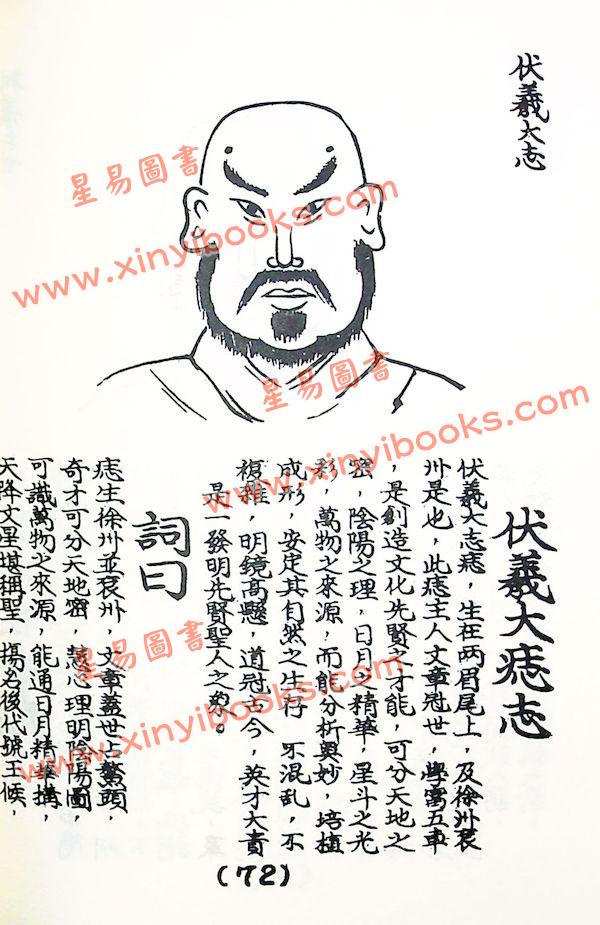 伏羲大志
伏羲大痣志
伏羲大志痣，生在两眉尾上，及徐州衮
州是也，此痣主人文章冠世，學富五車
，是創造文化先賢之才能，可分天地之
密，陰陽之理，日月之精華，星斗之光
彩，萬物之來源，而能分析奥妙，培植
成形，安定其自然之生存，不混乱，不
複雜，明鏡高懸，道冠古今，英才大貴
是一發明先賢聖人之象。
詞曰
痣生徐州並衮州，文章蓋世占鰲頭，
奇才可分天地密，慧心理明陰陽圖，
可識萬物之來源，能通日月精華構，
天降文星堪稱聖，揚名後代號王候，
(72)
星易圖書
www.xinyibooks.com
星易圖書
www.xinyibooks.com
星易圖書
www.xinyibooks.com